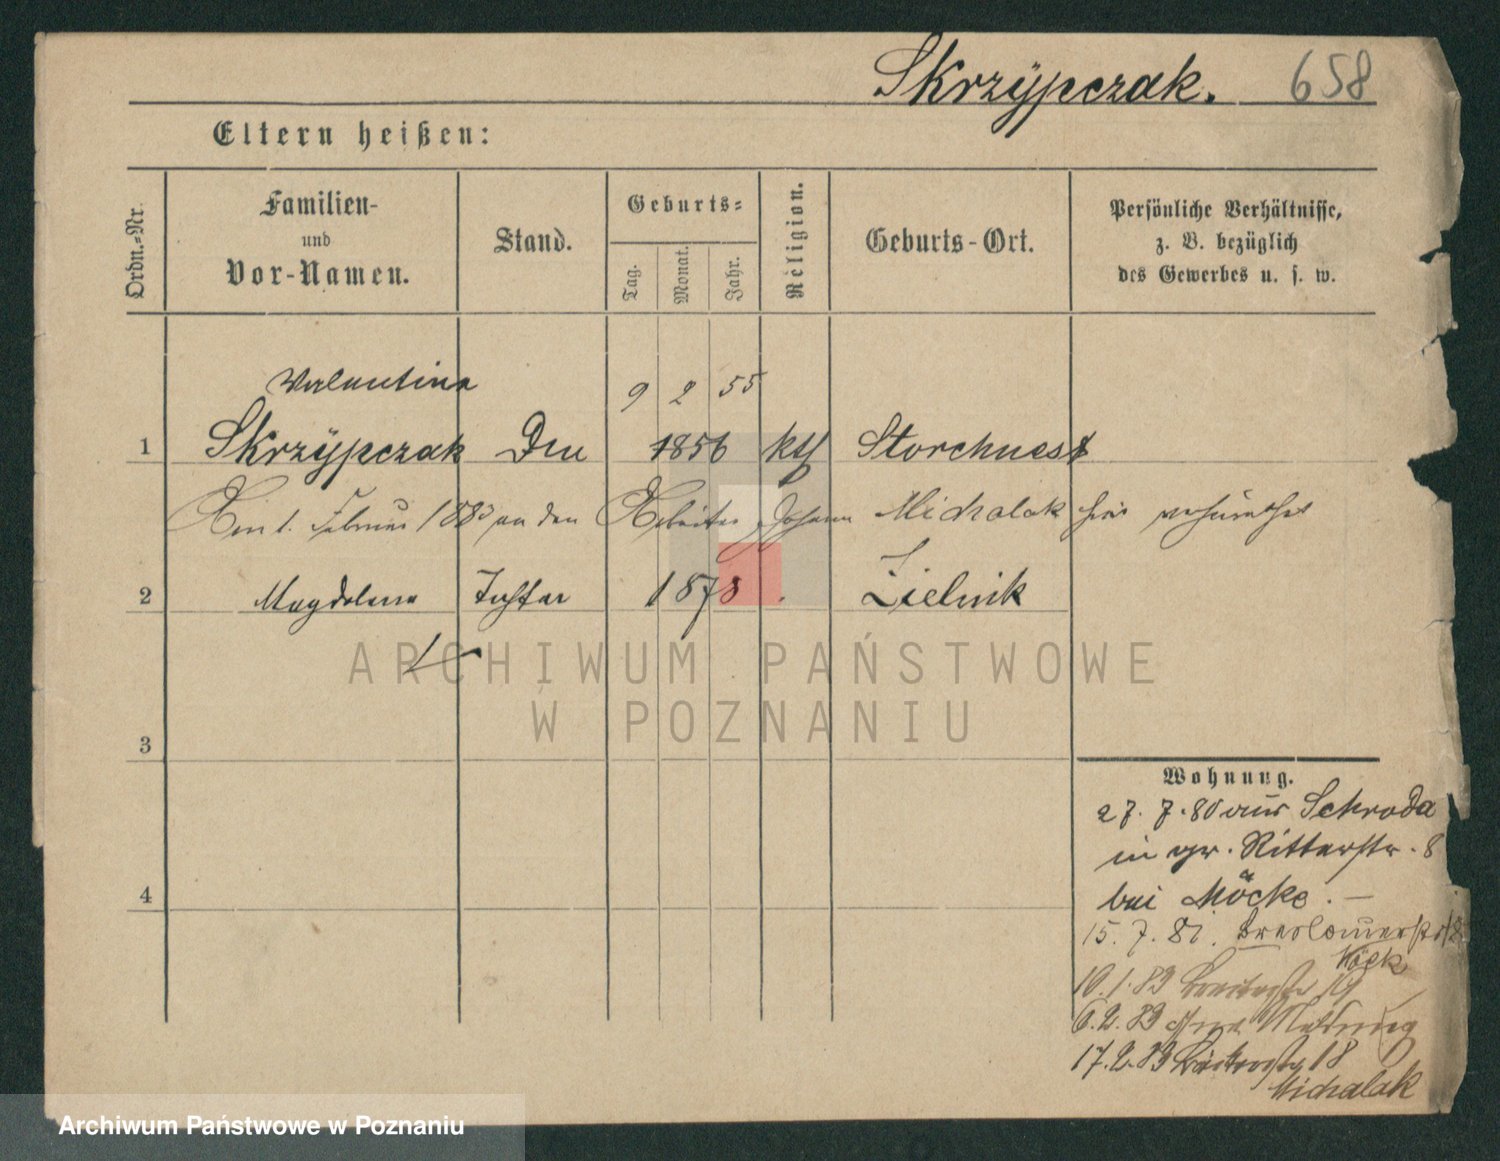 Skrzÿpczak. 658
Eltern heißen:
Ordn.-Nr.
Familien-
und
Vor-Namen.
Stand.
Geburts-
Tag.
Monat.
Jahr.
Religion.
Geburts-Ort.
Persönliche Verhältnisse,
z. B. bezüglich
des Gewerbes u. s. w.
Valentina 9 2 55
1 Skrzÿpczak 1856 kth Storchnest
1. Februar 1883 an den Arbeiter Johann Michalak hier verheirathet
2 Magdalena Tochter 1878 Zielnik
3
4
Wohnung.
27. 7. 80 aus Schroda
in gr. Ritterstr. 8
bei Möcke. –
15. 7. 81. Breslauerstr 18
10. 1. 83
6. 2. 83 ohne Meldung
17. 2. 83 18
Michalak
ARCHIWUM PAŃSTWOWE
W POZNANIU
Archiwum Państwowe w Poznaniu